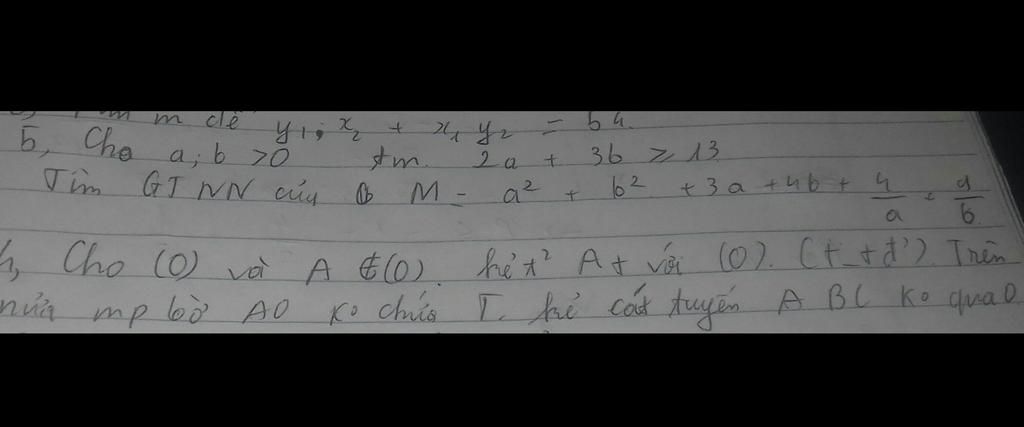 m để y₁; x₂ + x₁ y₂ = 64.
5, Cho a; b > 0 t/m. 2a + 3b ≥ 13
Tìm GTNN của M = a² + b² + 3a + 4b + 4/a + 9/b
Cho (O) và A ∉ (O). kẻ t² At với (O). (t-tđ'). Trên
nửa mp bờ AO ko chứa T. kẻ cát tuyến A BC ko qua O